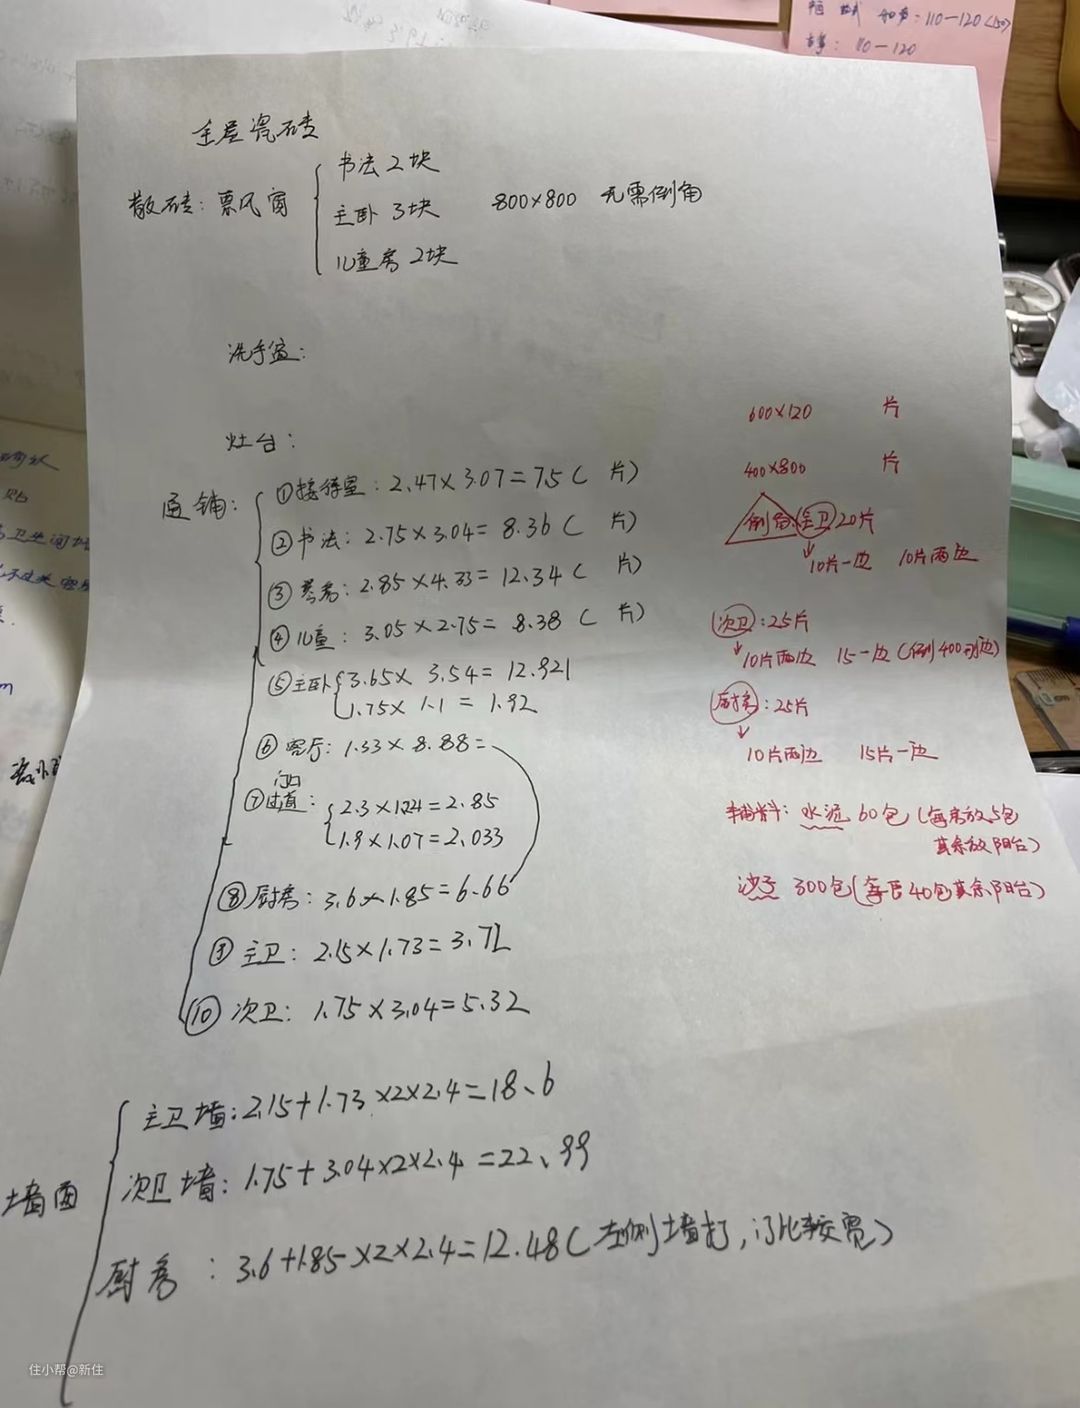 全屋瓷砖
散砖：票风窗
书法 2块
主卧 3块
儿童房 2块
800×800 无需倒角
洗手盆：
灶台：
通铺：
①接待室：2.47×3.07=7.5（ 片）
②书法：2.75×3.04=8.36（ 片）
③ 2.85×4.33=12.34（ 片）
④儿童：3.05×2.75=8.38（ 片）
⑤主卧 3.65×3.54=12.921
1.75×1.1=1.92
⑥客厅：1.33×8.88=
门口
⑦过道：2.3×1.24=2.85
1.9×1.07=2.033
⑧厨房：3.6×1.85=6.66
⑨主卫：2.15×1.73=3.72
⑩次卫：1.75×3.04=5.32
墙面
主卫墙：2.15+1.73×2×2.4=18、6
次卫墙：1.75+3.04×2×2.4=22、99
厨房：3.6+1.85×2×2.4=12.48（左侧墙打，门比较宽）
600×120 片
400×800 片
倒角 主卫 20片
10片一边 10片两边
次卫：25片
10片两边 15一边（倒400的边）
厨房：25片
10片两边 15片一边
辅料：水泥 60包（每房放5包
其余放阳台）
沙子 300包（每臣40包其余阳台）
110-120
110-120
住小帮@新住